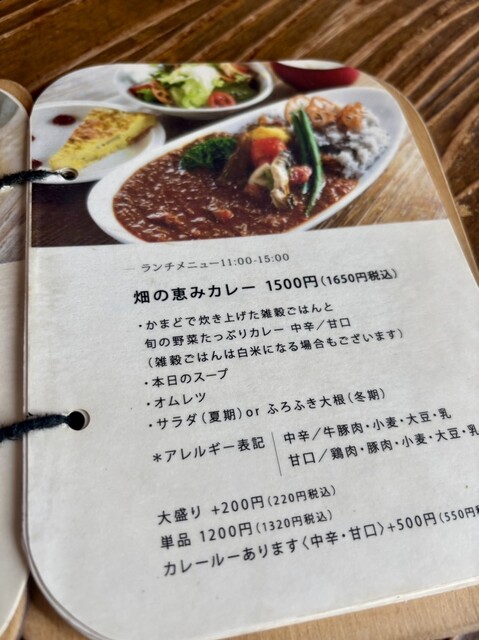 ランチメニュー11:00-15:00
畑の恵みカレー 1500円(1650円税込)
・かまどで炊き上げた雑穀ごはんと
旬の野菜たっぷりカレー 中辛／甘口
(雑穀ごはんは白米になる場合もございます)
・本日のスープ
・オムレツ
・サラダ(夏期)or ふろふき大根(冬期)
＊アレルギー表記
中辛／牛豚肉・小麦・大豆・乳
甘口／鶏肉・豚肉・小麦・大豆・乳
大盛り +200円(220円税込)
単品 1200円(1320円税込)
カレールーあります〈中辛・甘口〉+500円(550円